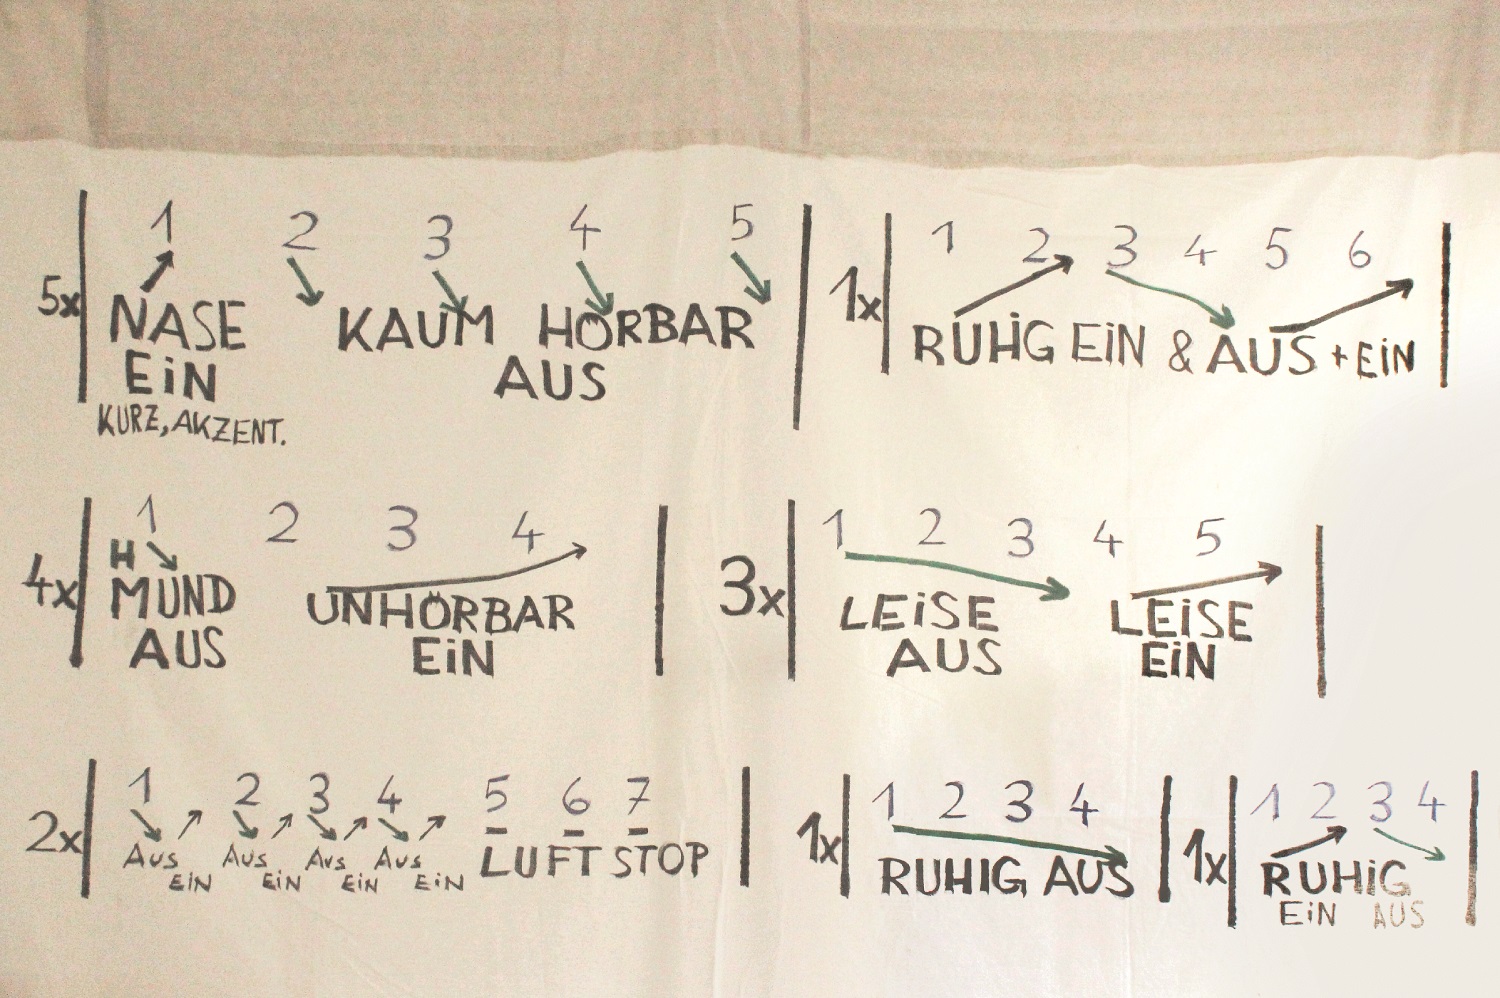 1 2 3 4 5
5x NASE KAUM HÖRBAR
EiN AUS
KURZ, AKZENT.
1 2 3 4 5 6
1x RUHiG EiN & AUS + EiN
1 2 3 4
H
4x MUND UNHÖRBAR
AUS EiN
1 2 3 4 5
3x LEiSE LEiSE
AUS EiN
1 2 3 4 5 6 7
2x AUS AUS AUS AUS LUFT STOP
EiN EiN EiN EiN
1 2 3 4
1x RUHIG AUS
1 2 3 4
1x RUHiG
EiN AUS